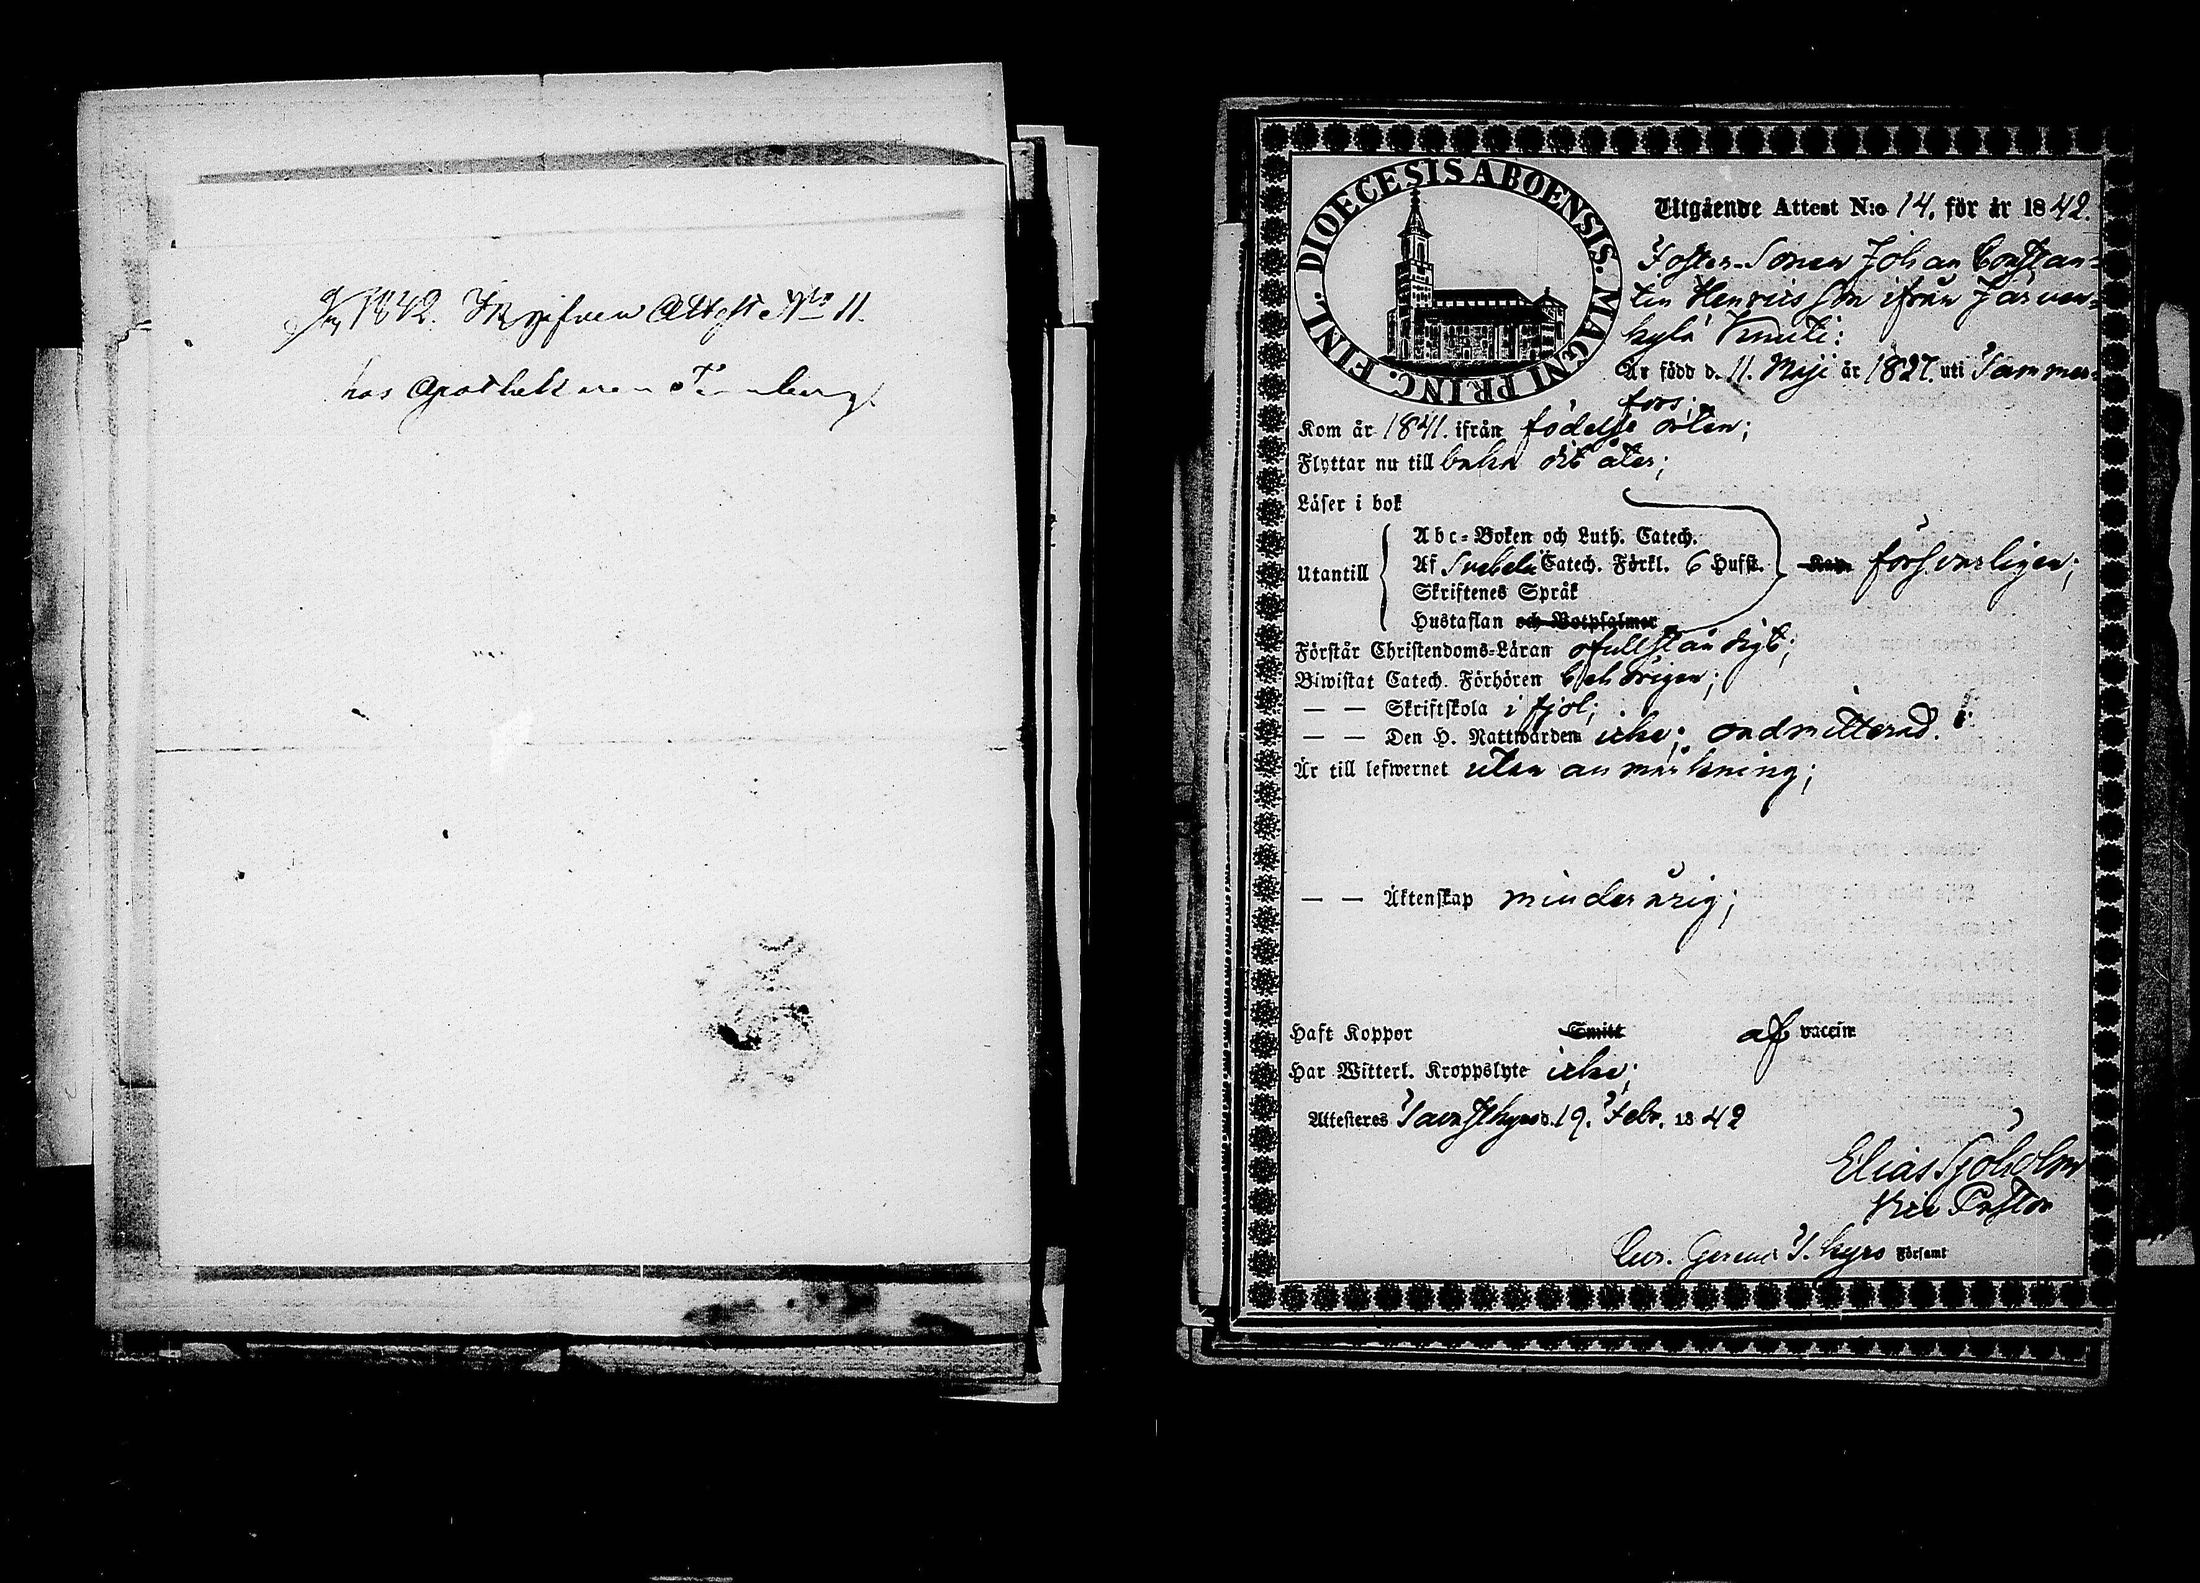 1842. Attest No 11.
hos Apothekaren
DIOECESIS ABOENSIS. MAGNI PRINC. FINL.
Utgående Attest N:o 14. för år 1842.
Foster-Sonen Johan Constan=
tin Henricsson ifrån Järven=
kylä Knuti:
Är född d. 11. Maji år 1827. uti Tammer=
fors;
Kom år 1841. ifrån födelse orten;
Flyttar nu till baka dit åter;
Läser i bok
Utantill
Abc=Boken och Luth. Catech.
Af Svebelii Catech. Förkl. 6 Hufst. Kap. försvarligen;
Skriftenes Språk
Hustaflan och Botpsalmer
Förstår Christendoms=Läran ofullständigt;
Biwistat Catech. Förhören behörigen;
— — Skriftskola i fjol;
— — Den H. Nattwarden icke; oadmitterad.
Är till lefwernet utan anmärkning;
— — Äktenskap minderårig;
Haft Koppor Smitt af vaccin
Har Witterl. Kroppslyte icke;
Attesteres Tavastkyro d. 19. Febr. 1842
Elias Sjöholm
Vice Pastor
Cur. Gerens T. kyro Församl